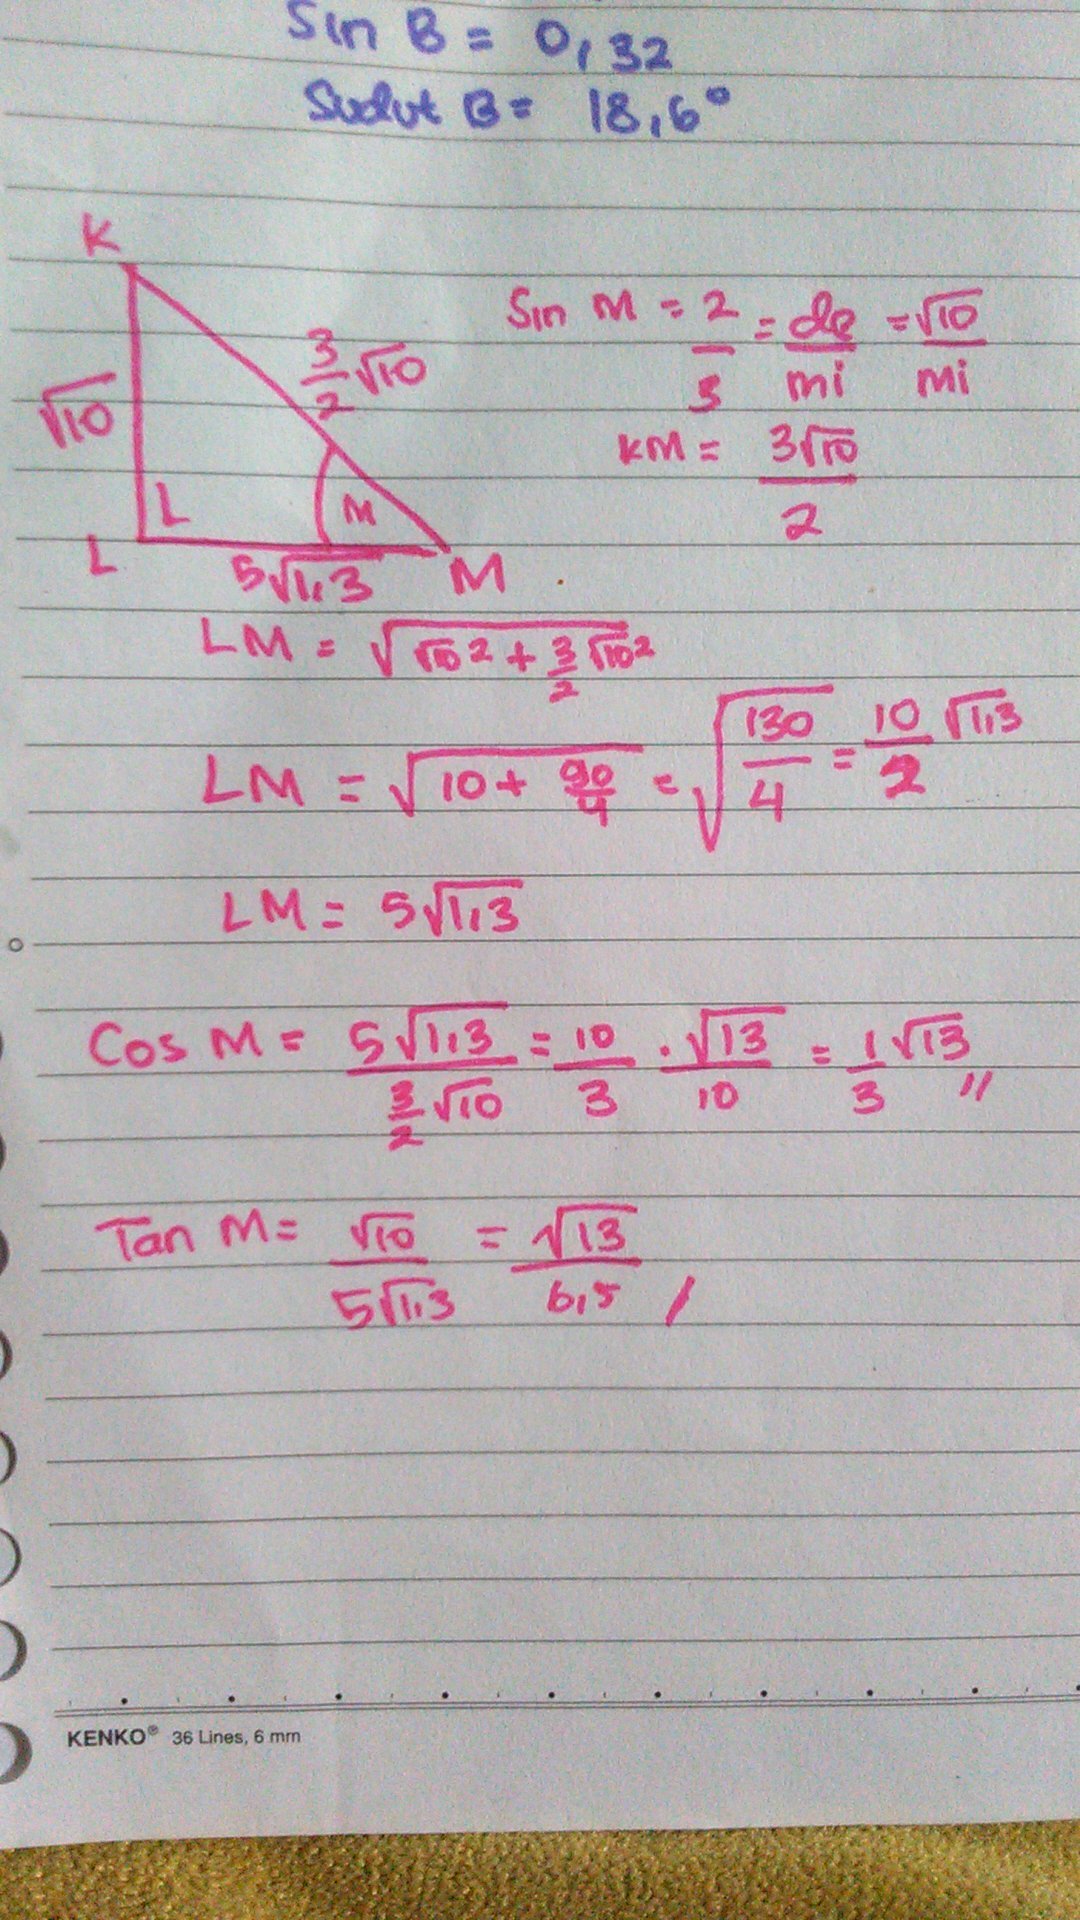 Sin B = 0,32
Sudut B = 18,6°
K
3/2 √10
√10
L
M
L
5√1,3
M
Sin M = 2/3 = de/mi = √10/mi
KM = 3√10/2
LM = √(√10² + 3/2 √10²)
LM = √(10 + 90/4) = √(130/4) = 10/2 √1,3
LM = 5√1,3
Cos M = 5√1,3 / (3/2 √10) = 10/3 . √13/10 = 1/3 √13 //
Tan M = √10 / 5√1,3 = √13 / 6,5 /
KENKO® 36 Lines, 6 mm